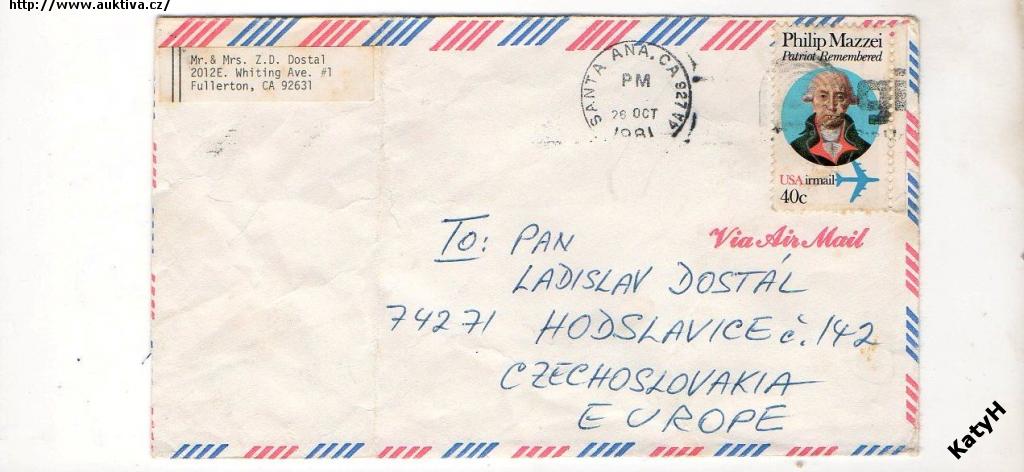 http://www.auktiva.cz/
Mr.& Mrs. Z.D. Dostal
2012E. Whiting Ave. #1
Fullerton, CA 92631
SANTA ANA, CA 927
PM
26 OCT
1981
Philip Mazzei
Patriot Remembered
USA irmail
40c
Via Air Mail
TO: PAN
LADISLAV DOSTÁL
74271 HODSLAVICE č. 142
CZECHOSLOVAKIA
EUROPE
KatyH